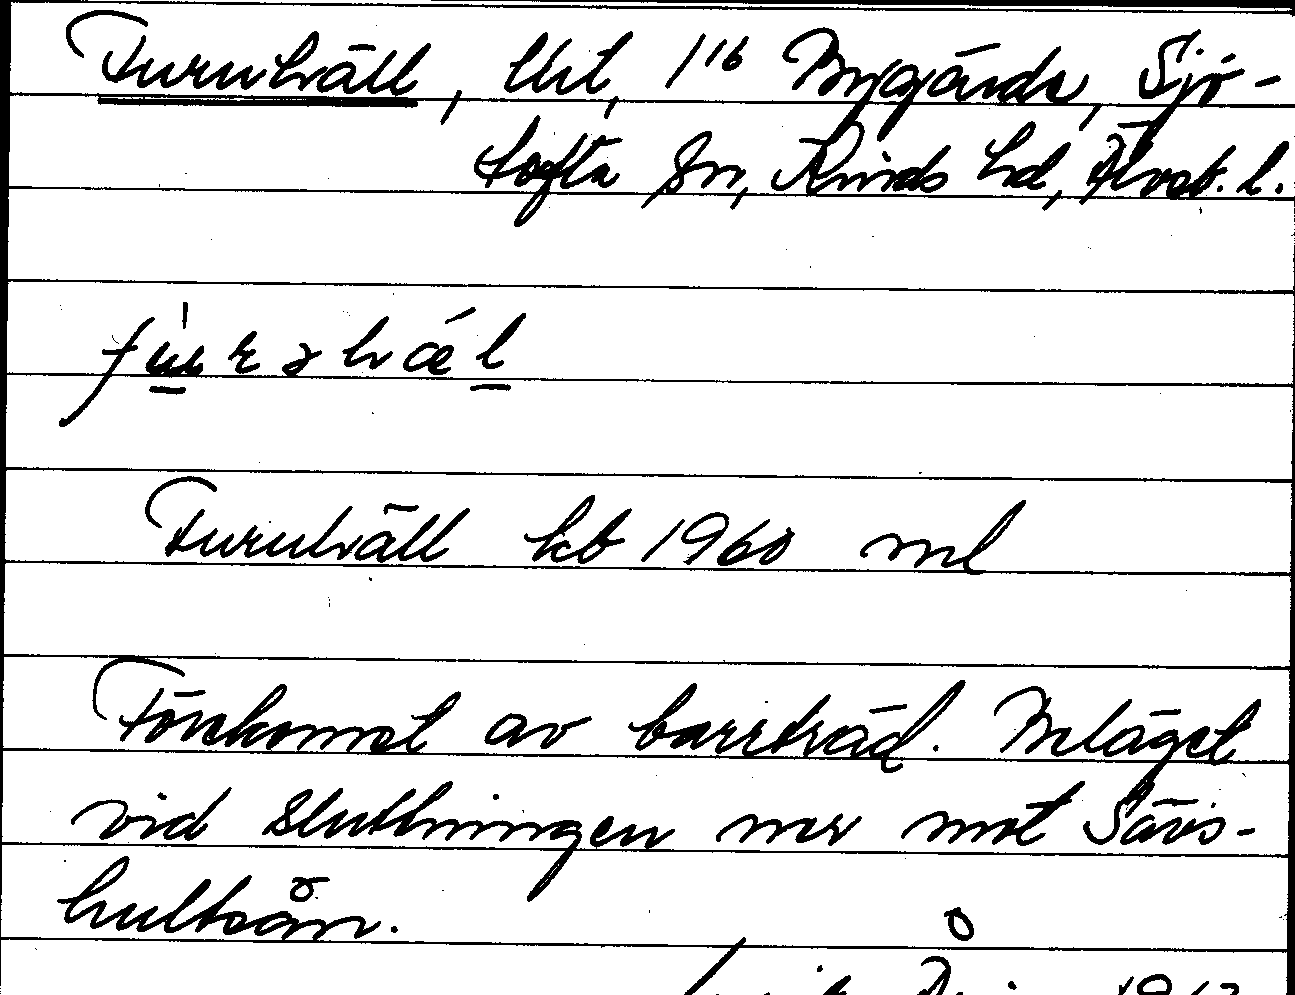 Furuhväll, lht, 1/16 Bygärde, Sjö-
tofta sn, Kinds hd, Älvsb. l.
Furuhväll kb 1960 ml
Förekomst av barrträd. Beläget
vid sluttningen ner mot Sävs-
hultsån.